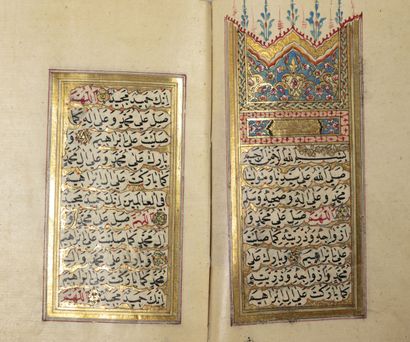 بسم الله الرحمن الرحيم
صلى الله على سيدنا ومولانا
محمد وعلى آله وصحبه وسلم
اللهم صل على محمد و
أزواجه وذريته كما صليت
على إبراهيم وبارك على
محمد وأزواجه وذريته
كما باركت على آل إبراهيم
إنك حميد مجيد اللهم
صل على محمد وعلى آله كما
صليت على إبراهيم و
بارك على محمد وعلى آل محمد
كما باركت على آل إبراهيم
في العالمين إنك حميد مجيد
اللهم صل على محمد و
آل محمد كما صليت على إبراهيم
وبارك على محمد وعلى
آل محمد كما باركت على إبراهيم
إنك حميد مجيد اللهم